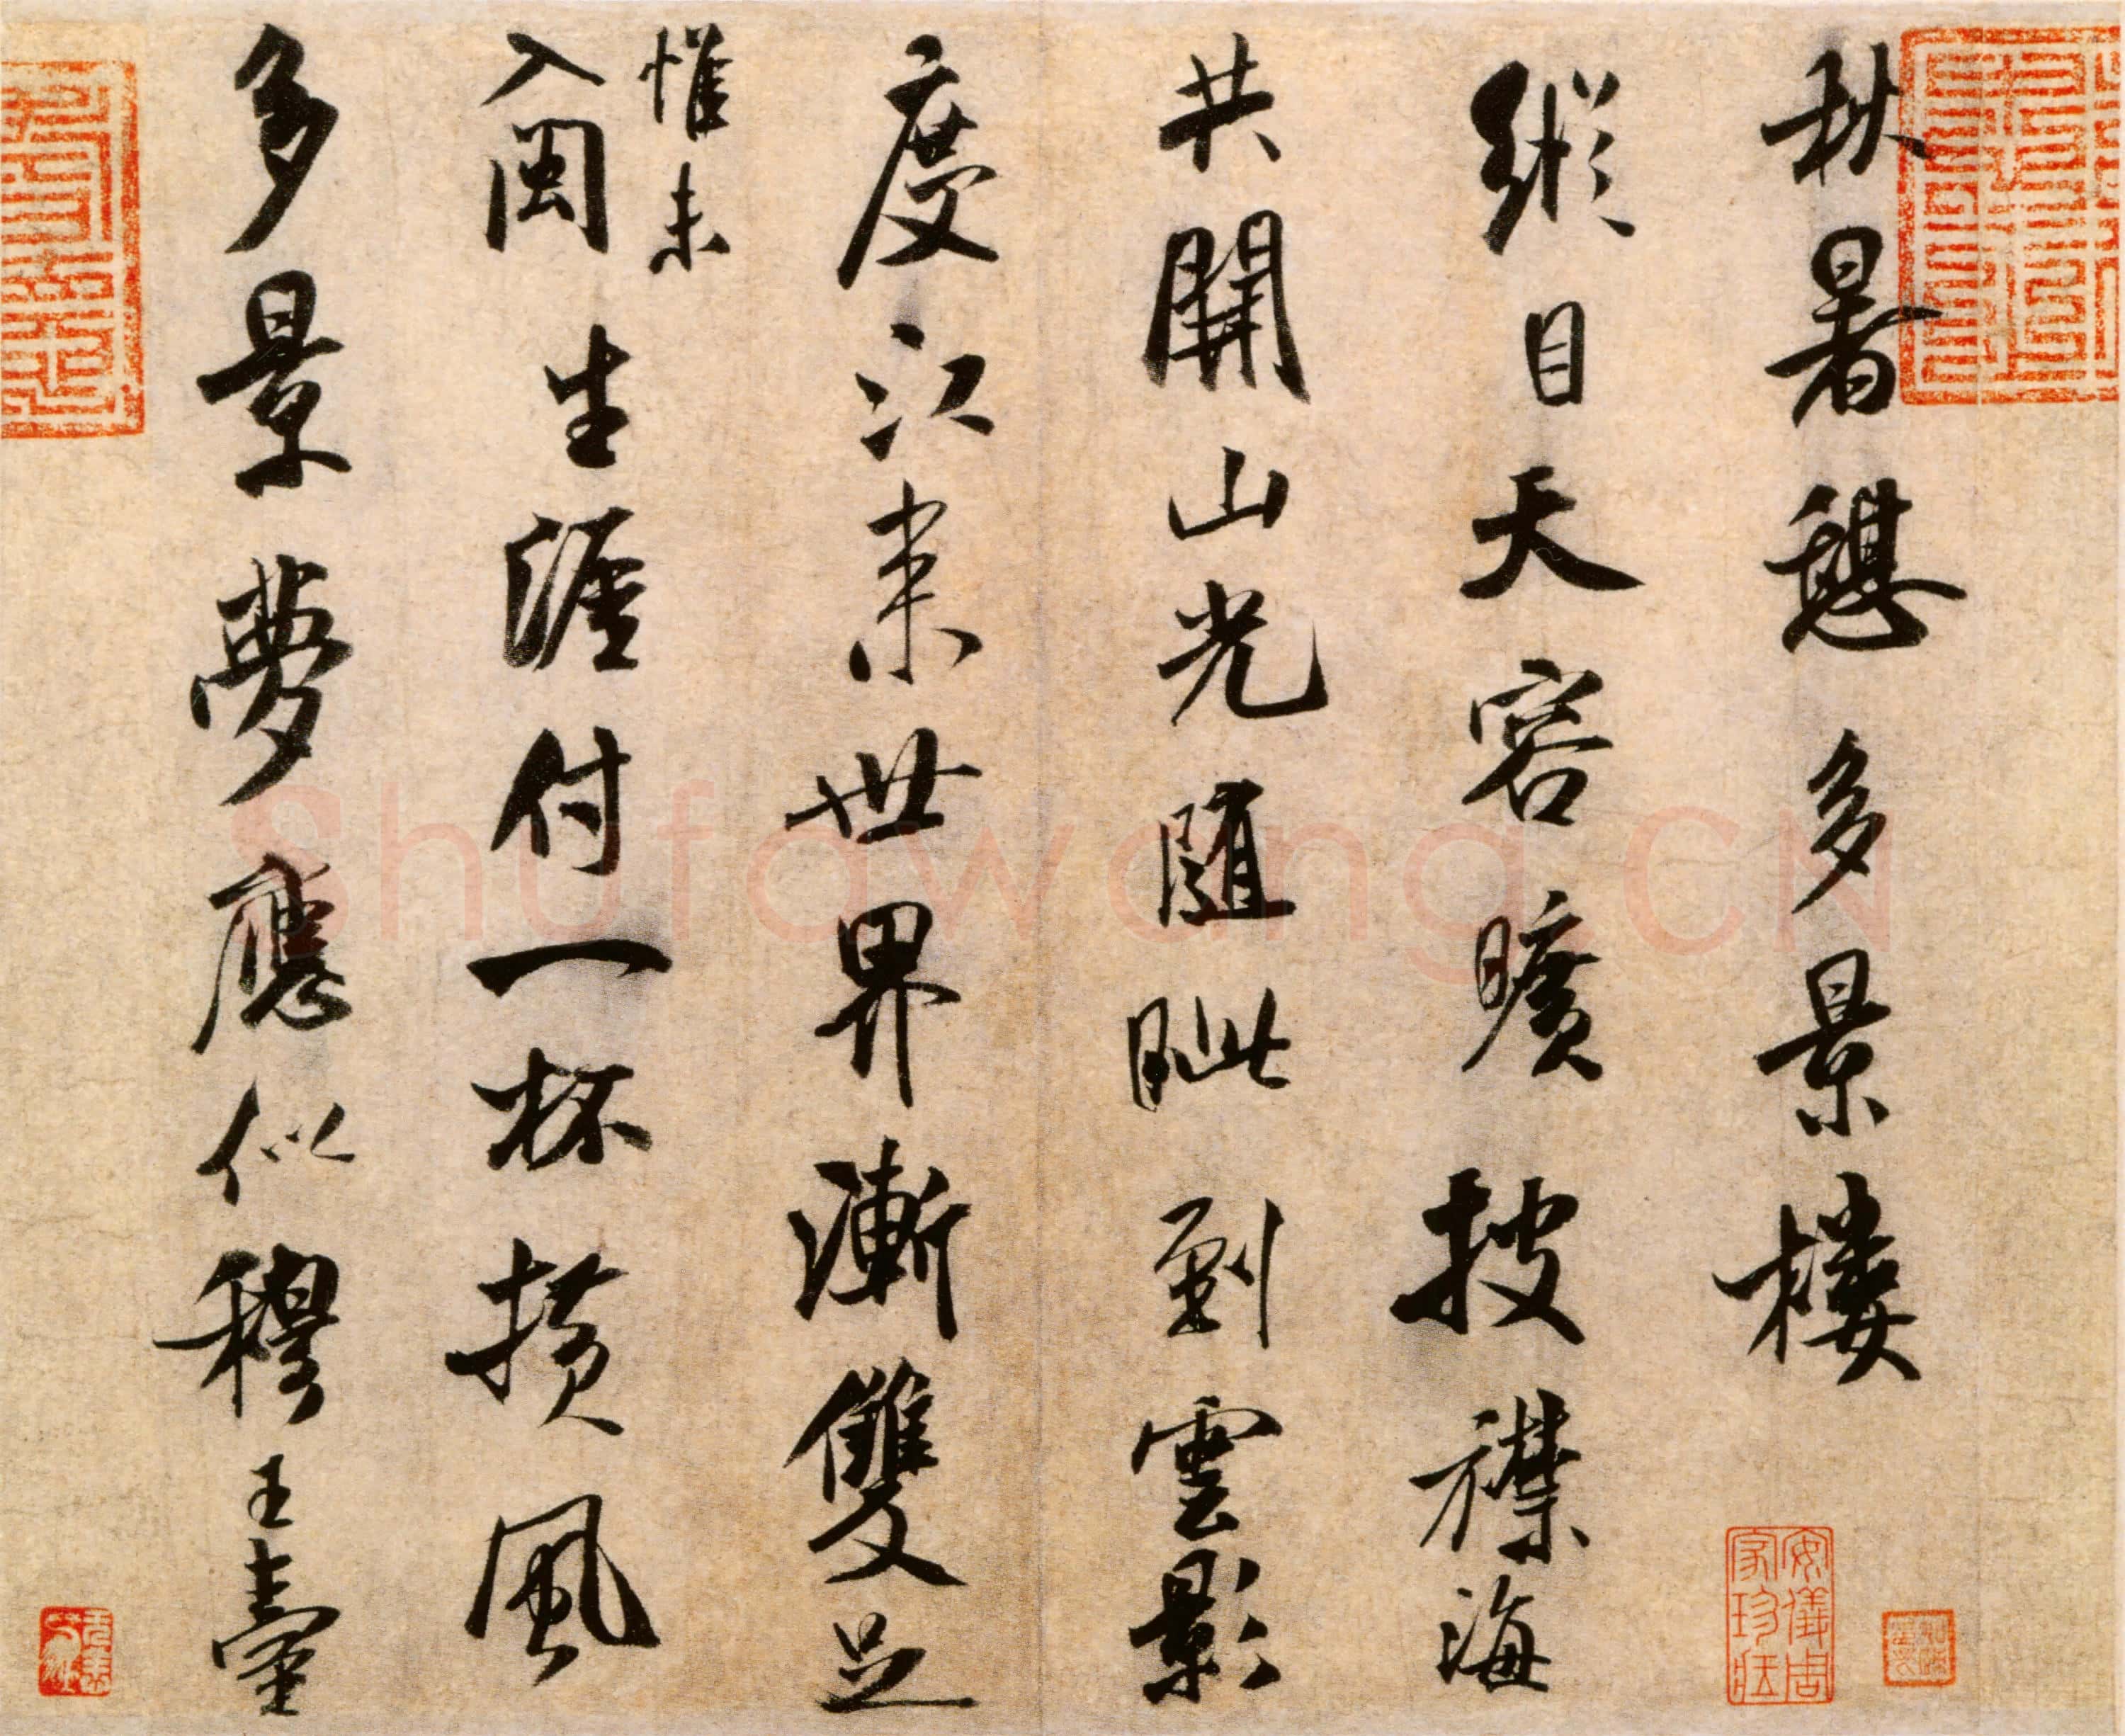 秋暑憩多景樓
縱目天容曠披襟海
共開山光隨眦到雲影
度江来世界漸雙足
惟未
入閩生涯付一杯横風
多景夢應似穆王臺
Shufawang.CN
安儀周家珍藏